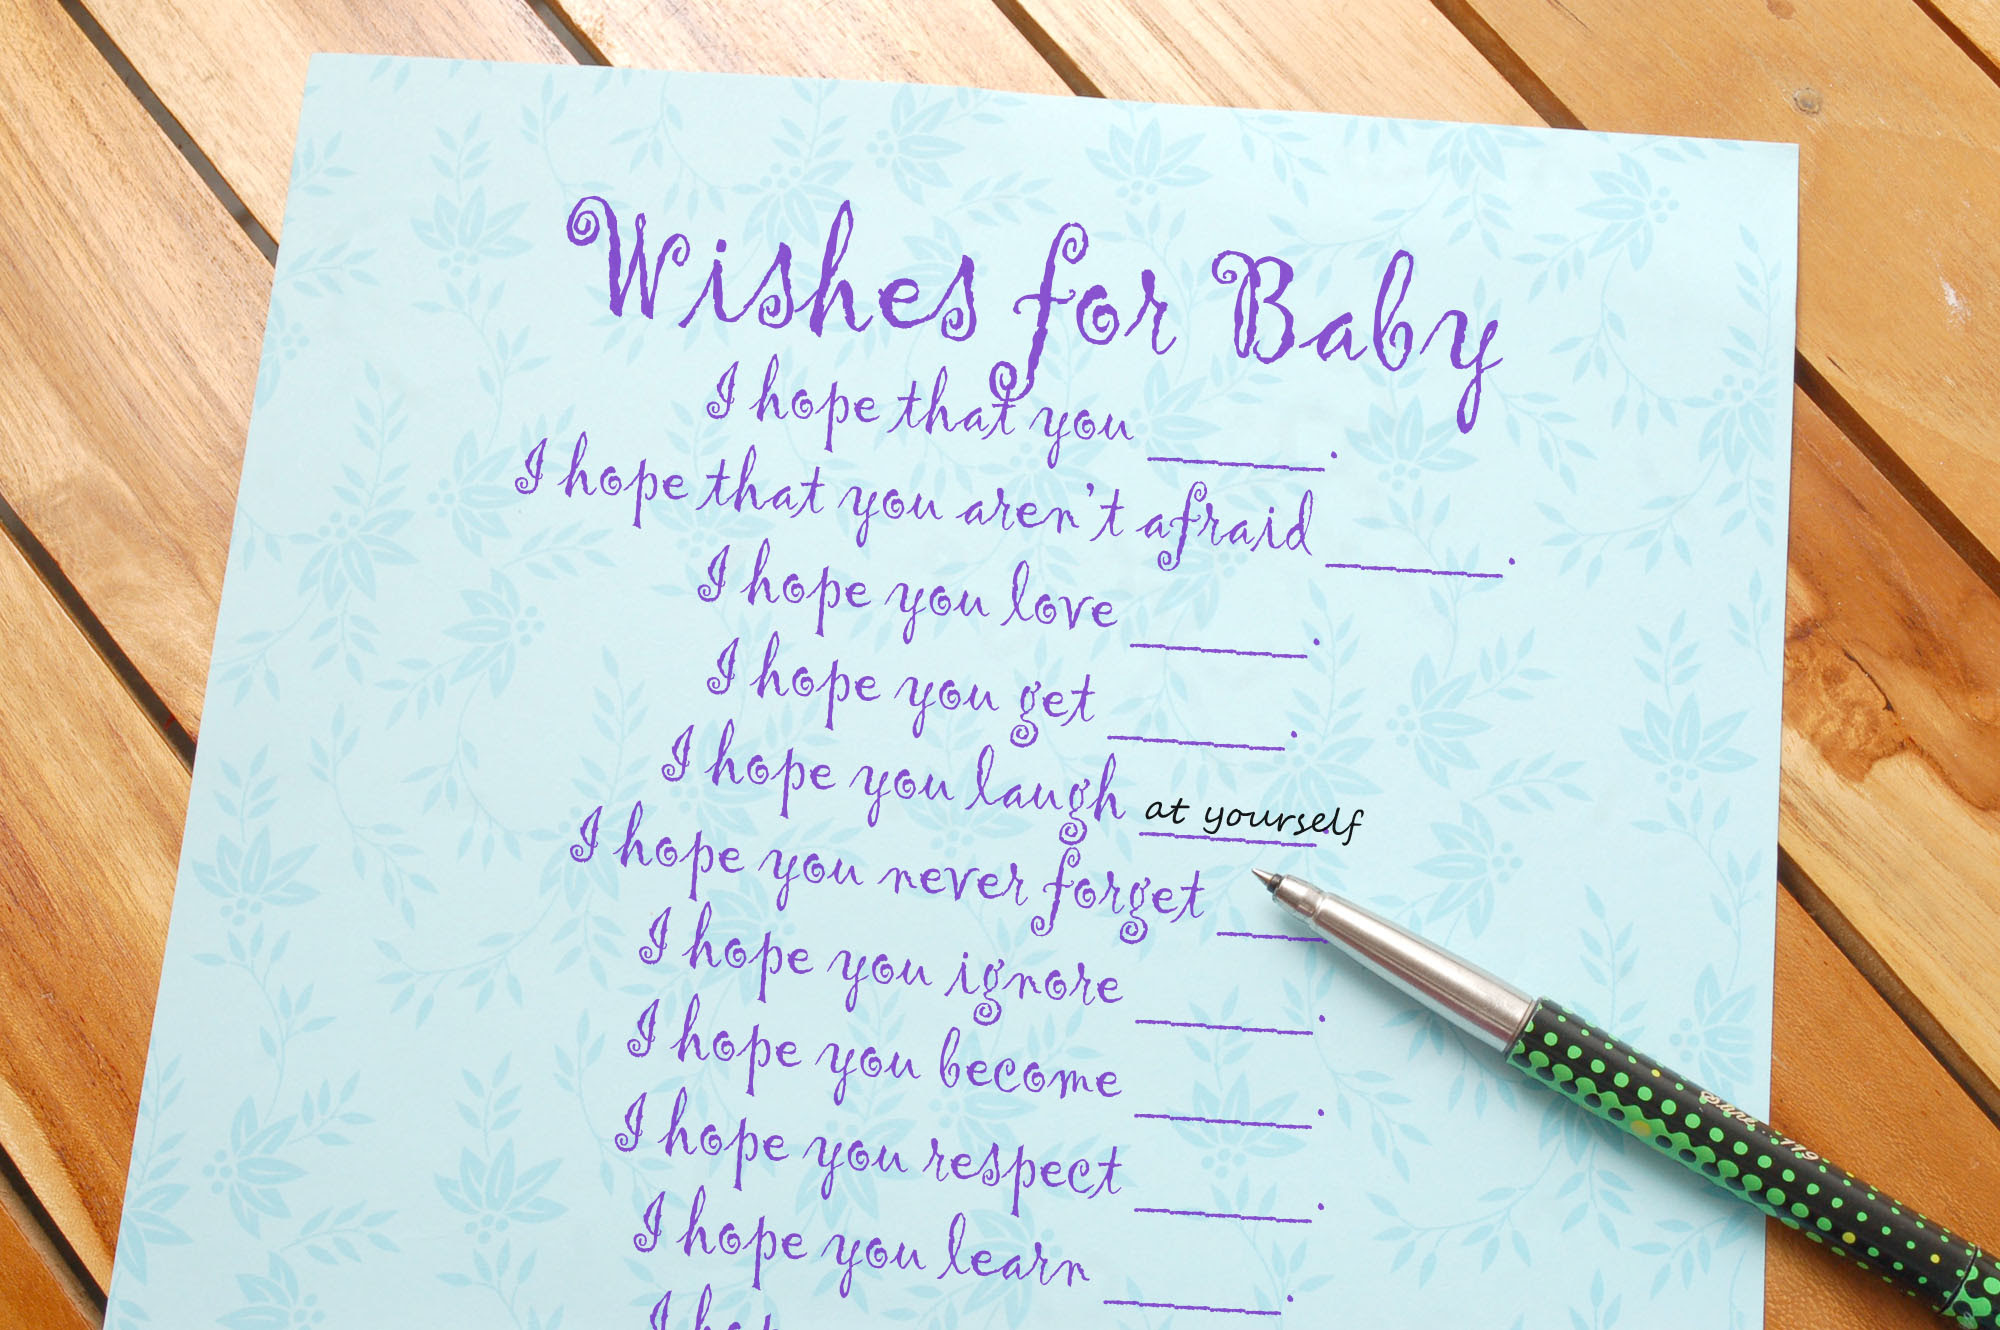 Wishes for Baby
I hope that you ______.
I hope that you aren't afraid ______.
I hope you love ______.
I hope you get ______.
I hope you laugh at yourself
I hope you never forget ____
I hope you ignore ______.
I hope you become ______.
I hope you respect ______.
I hope you learn ______.
I hop